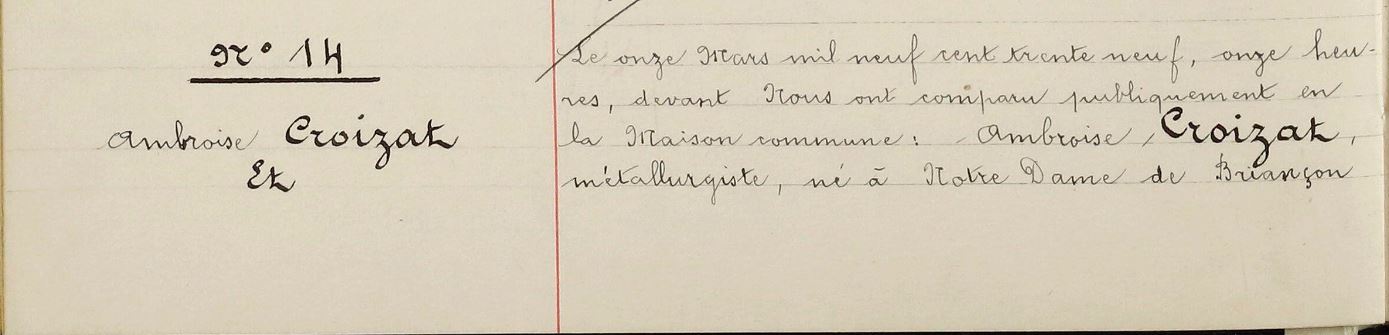 N° 14
Ambroise Croizat
Et
Le onze Mars mil neuf cent trente neuf, onze heu-
res, devant Nous ont comparu publiquement en
la Maison commune : Ambroise Croizat,
métallurgiste, né à Notre Dame de Briançon